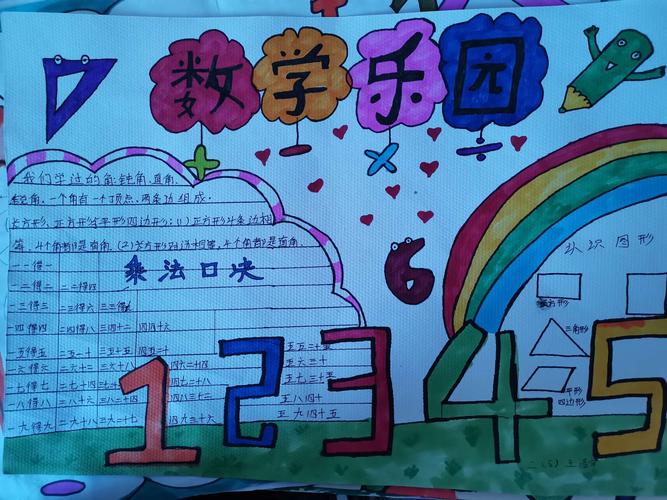 数学乐园
+ − × ÷
我们学过的角:钝角、直角、
锐角。一个角有一个顶点,两条边组成。
长方形、正方形
平行四边形:(1)正方形4条边相
等,4个角都是直角。(2)长方形对边相等,4个角都是直角。
乘法口决
一一得一
一二得二 二二得四
一三得三 二三得六 三三得九
一四得四 二四得八 三四十二 四四十六
一五得五 二五一十 三五十五 四五二十 五五二十五
一六得六 二六十二 三六十八 四六二十四 五六三十
一七得七 二七十四 四七二十八 五七三十五
一八得八 二八十六 三八二十四 五八四十
一九得九 二九十八 三九二十七 四九三十六 五九四十五
6
认识图形
长方形
三角形
平形
四边形
1 2 3 4 5
二(5)王